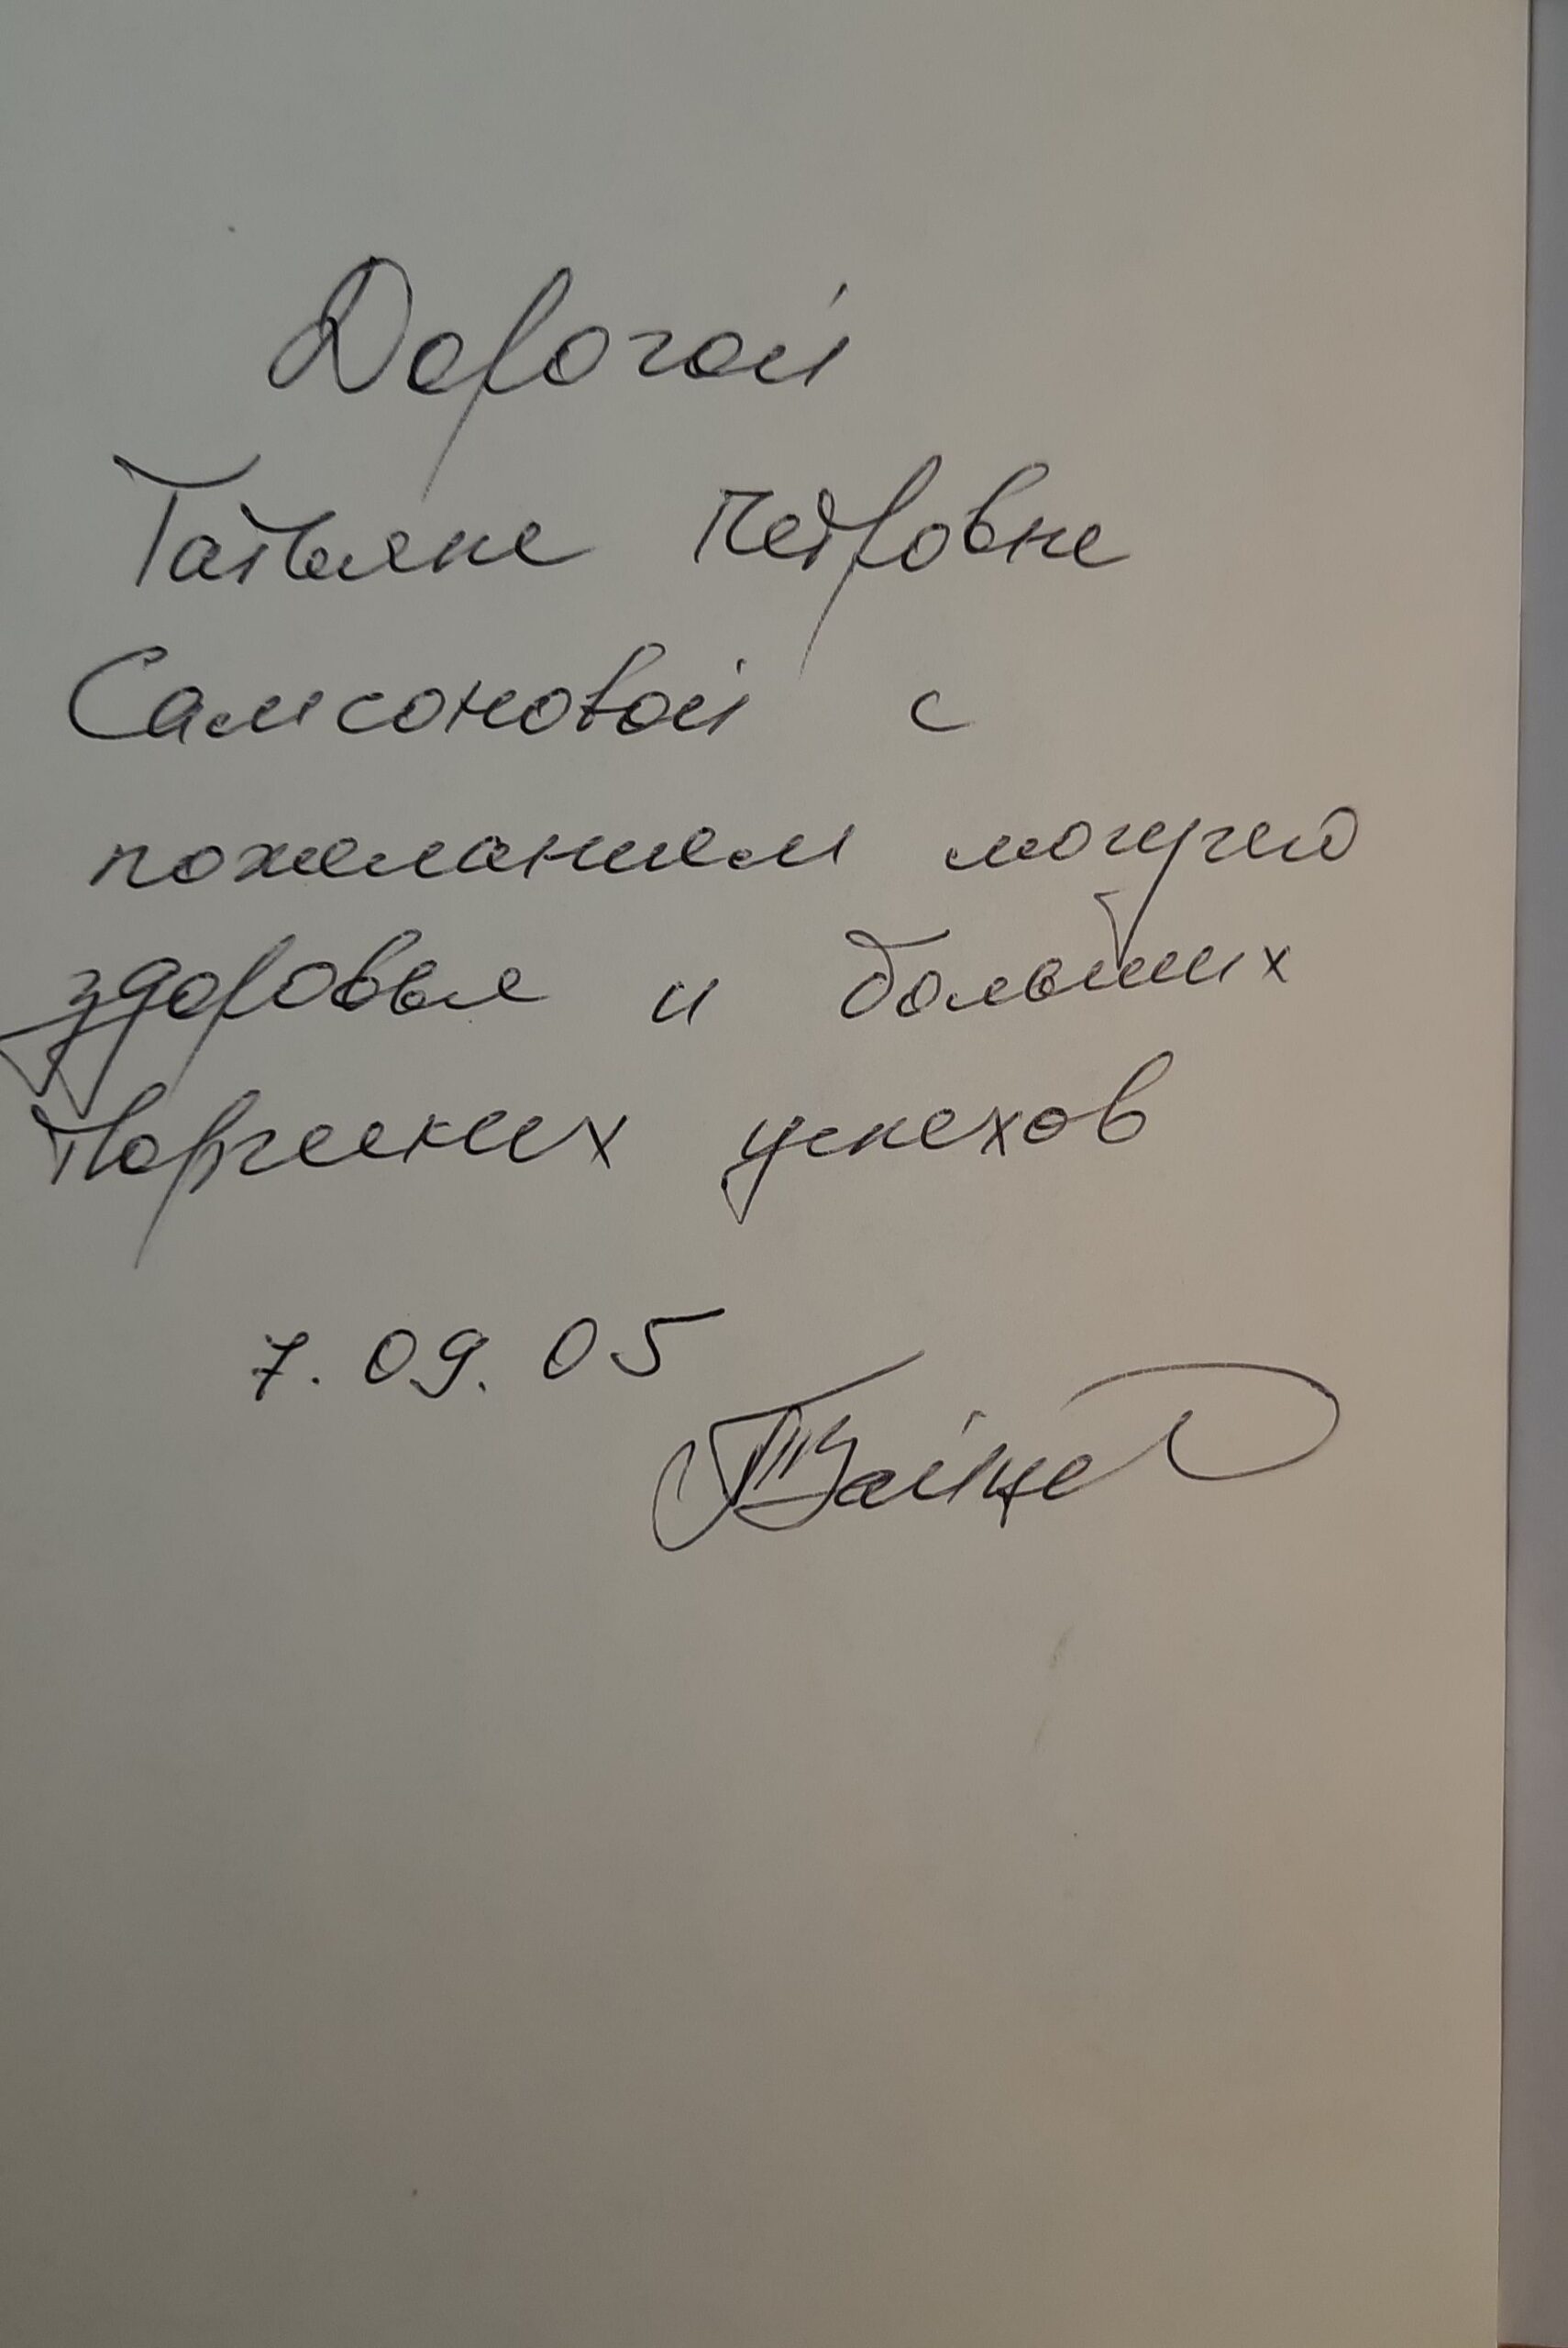 Дорогой
Татьяне Петровне
Самсоновой с
пожеланием могучего
здоровья и больших
творческих успехов
7.09.05